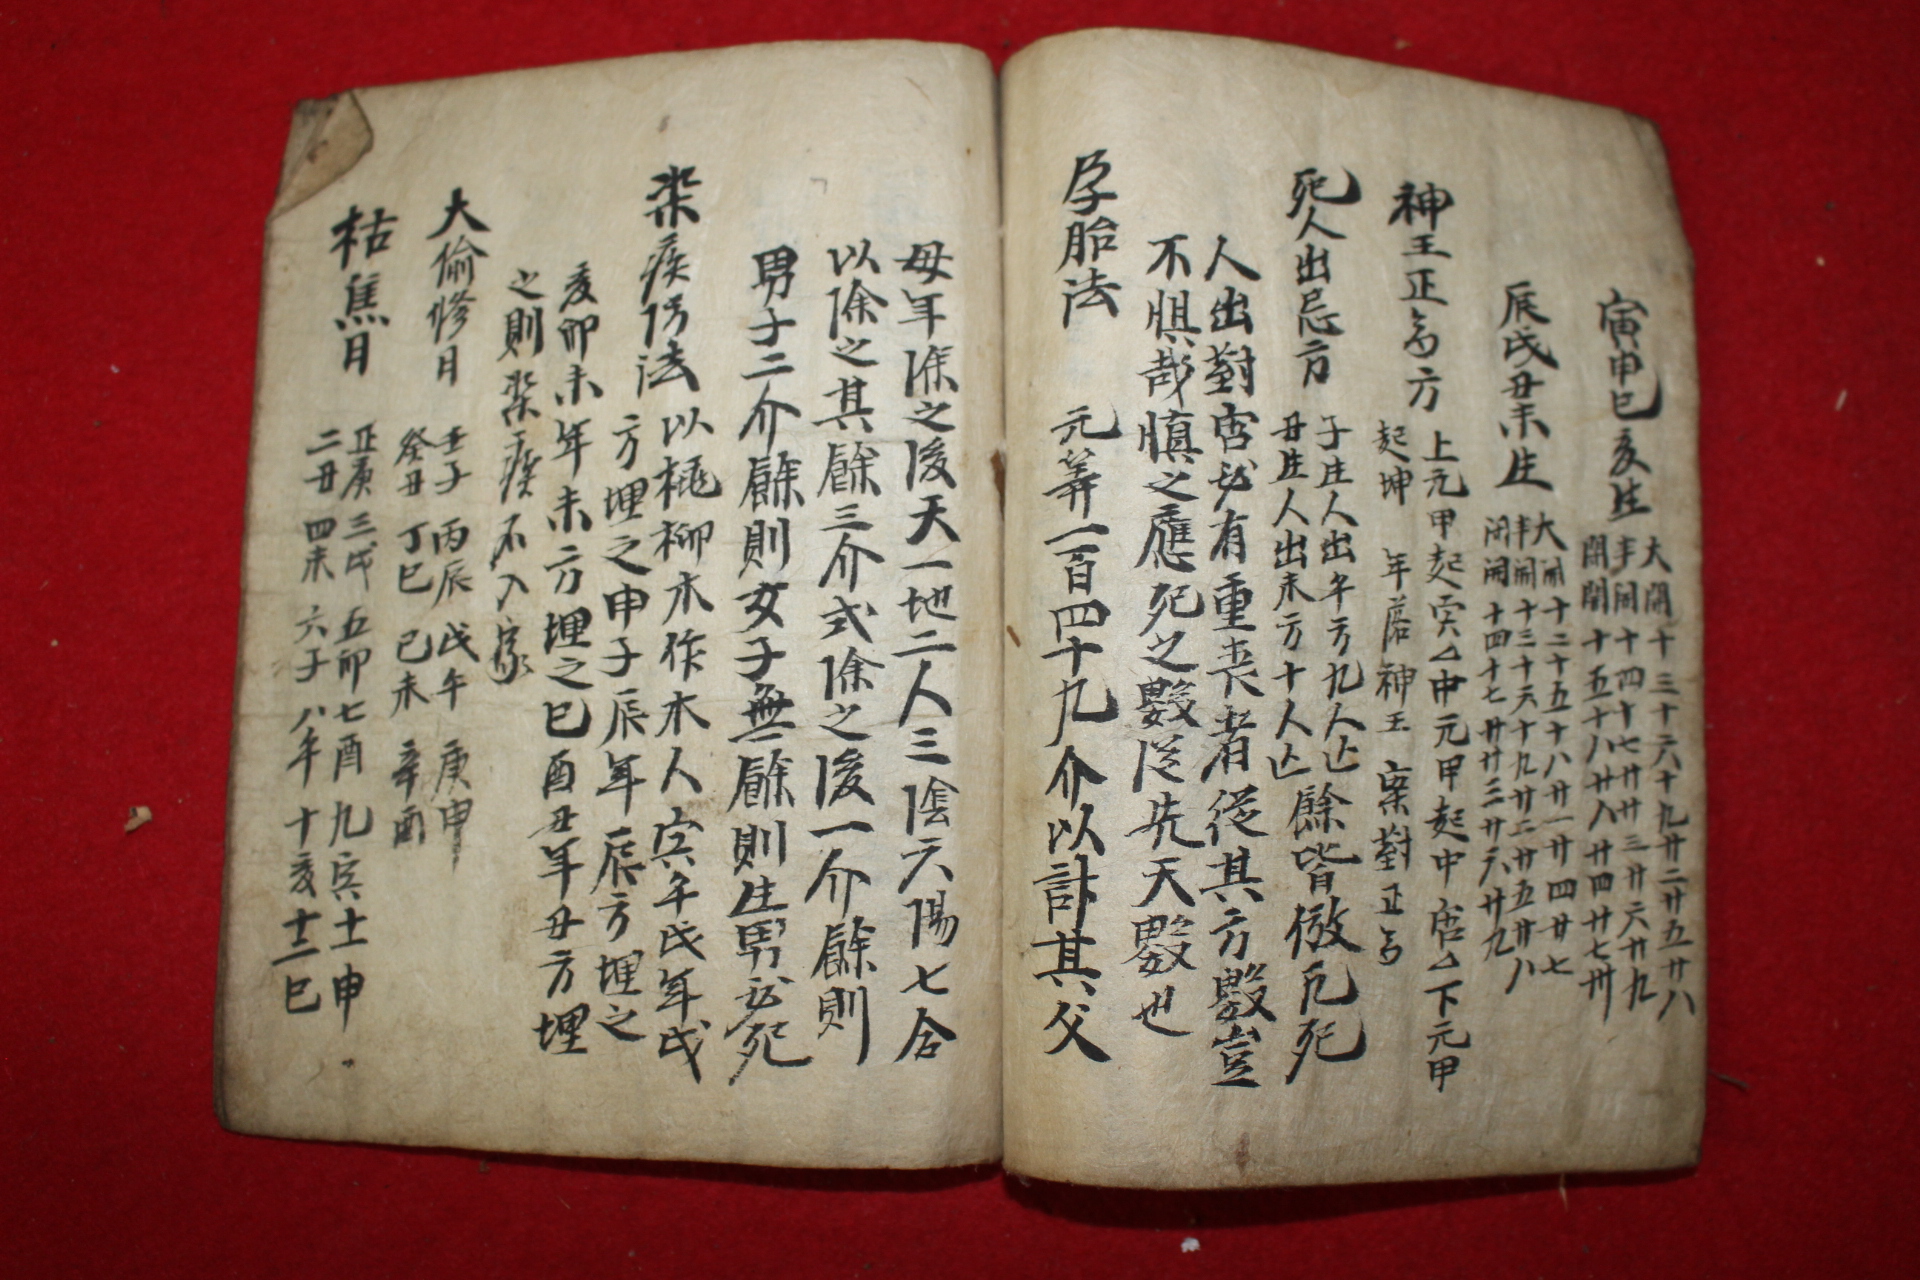 寅申巳亥生
大開十三十六十九廿二廿五廿八
半開十四十七廿廿三廿六廿九
閉開十五十八廿八廿四廿七卅
辰戌丑未生
大開十二十五十八廿一廿四廿七
半開十三十六十九廿二廿五廿八
閉開十四十七廿廿三廿六廿九
神王正方
上元甲起穴中元甲起中宮下元甲
起坤 年蓂神王 案對正
死人出忌方
子生人出午方九人亡
丑生人出未方十人亡
餘皆倣凡死
人出對宮必有重喪者從其方數豈
不愼哉愼之應死之數從先天數也
孕胎法
元筭一百四十九介以計其父
母年除之後天一地二人三陰六陽七合
以除之其餘三介式除之後一介餘則
男子二介餘則女子無餘則生男必死
染疾防法
以桃柳木作木人寅午戌年戌
方埋之申子辰年辰方埋之
亥卯未年未方埋之巳酉丑年丑方埋
之則染疾不入家
大偷修日
壬子 丙辰 戊午 庚申
癸丑 丁巳 己未 辛酉
枯焦日
正庚三戌五卯七酉九寅十一申
二丑四未六子八午十亥十二巳